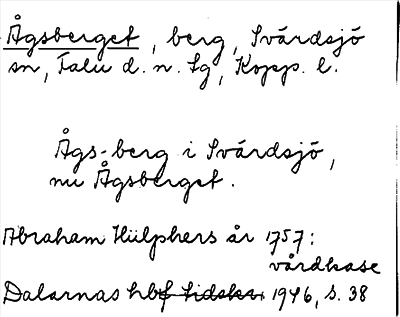 Ågsberget, berg, Svärdsjö
sn, Falu d. n. Lg, Kopp. l.
Ågs-berg i Svärdsjö,
nu Ågsberget.
Abraham Hülphers år 1757:
vårdkase
Dalarnas hbf tidskr. 1946, s. 38